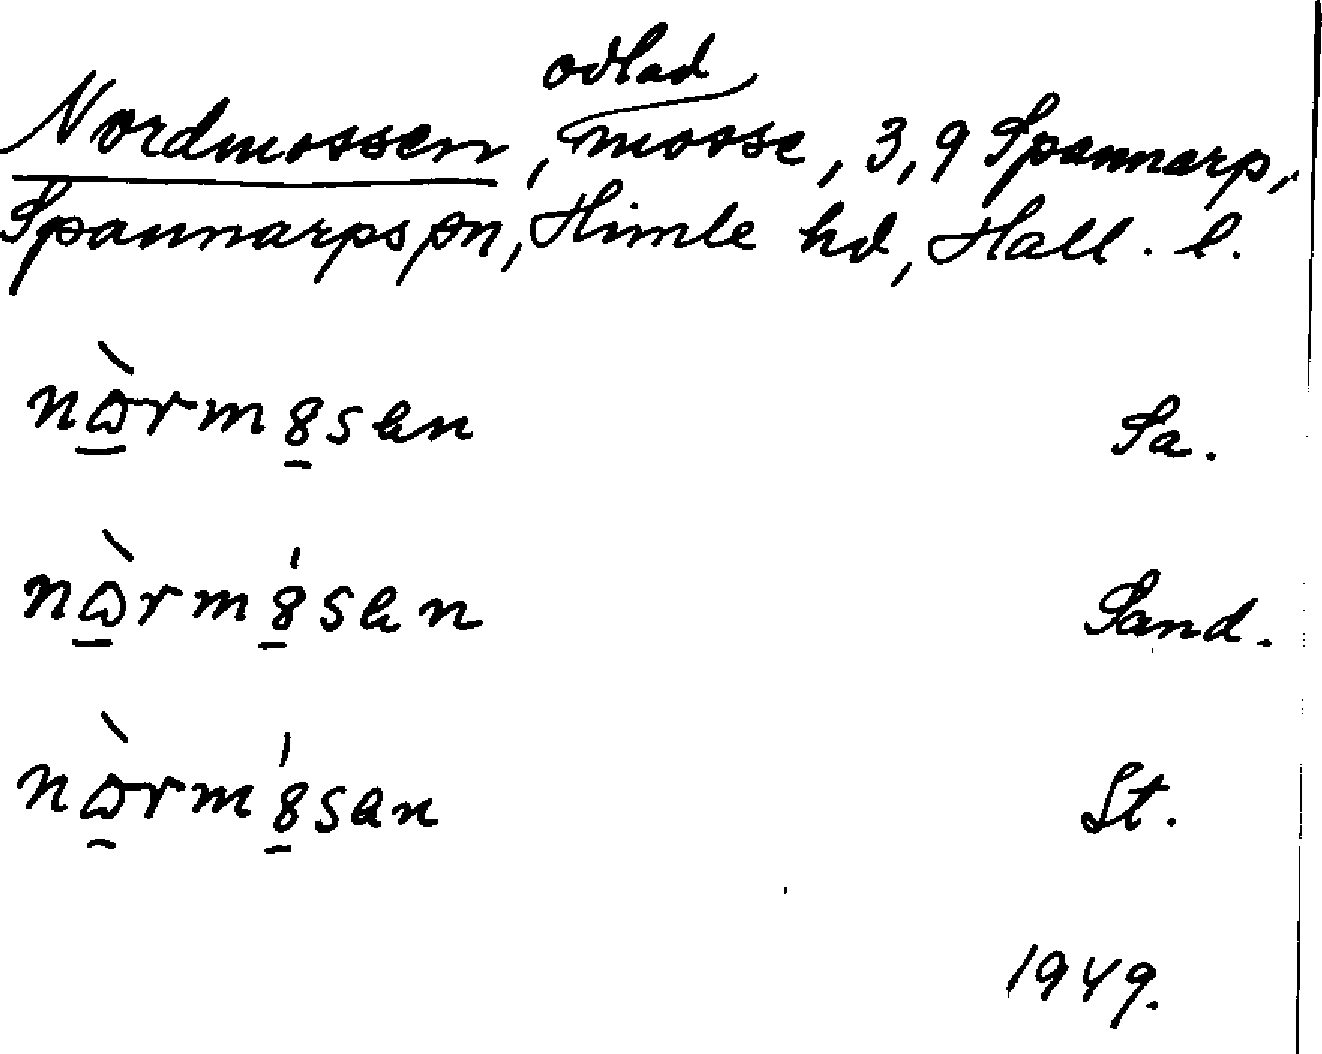 odlad
Nordmossen, mosse, 3,9 Spannarp,
Spannarps sn, Himle hd, Hall. l.
Sa.
Sand.
St.
1949.